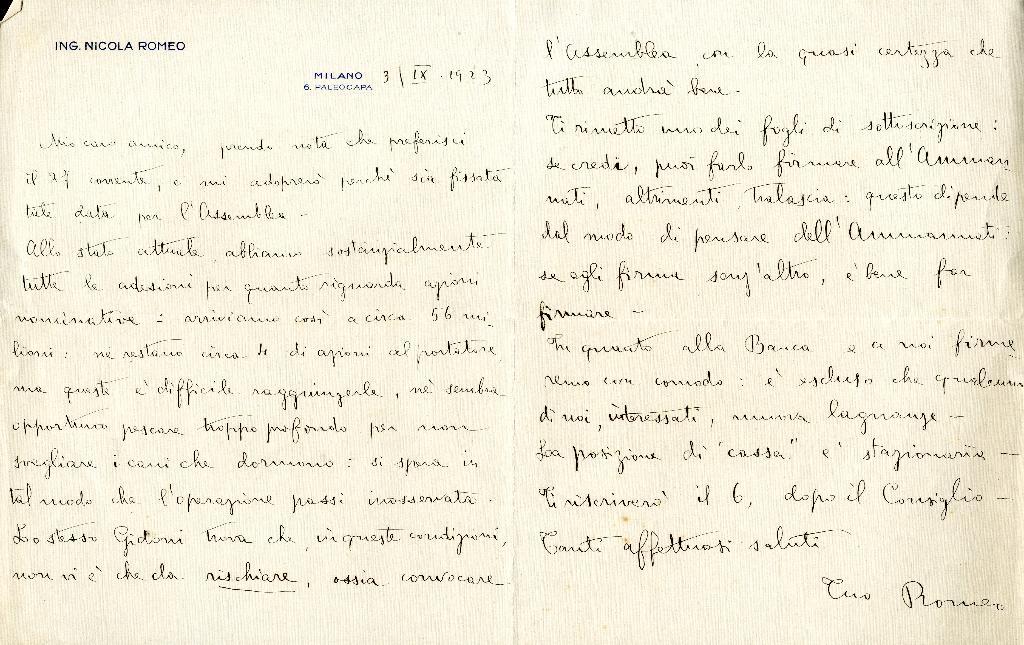 ING. NICOLA ROMEO
MILANO
6. PALEOCAPA
3/IX.1923
Mio caro amico, prendo nota che preferisci
il 27 corrente, e mi adoprerò perchè sia fissata
tale data per l'Assemblea -
Allo stato attuale, abbiamo sostanzialmente
tutte le adesioni per quanto riguarda azioni
nominative : arriviamo così a circa 56 mi-
lioni : ne restano circa 4 di azioni al portatore
ma queste è difficile raggiungerle, nè sembra
opportuno pescare troppo profondo per non
svegliare i cani che dormono : si spera in
tal modo che l'operazione passi inosservata.
Lo stesso Gidoni trova che, in queste condizioni,
non vi è che da rischiare, ossia convocare
l'Assemblea con la quasi certezza che
tutto andrà bene -
Ti rimetto uno dei fogli di sottoscrizione :
se credi, puoi farlo firmare all'Amman
nati, altrimenti, tralascia : questo dipende
dal modo di pensare dell'Ammannati :
se egli firma senz'altro, è bene far
firmare -
In quanto alla Banca e a noi firme
remo con comodo : è escluso che qualcuno
di noi, interessati, muova lagnanze -
La posizione di "cassa" è stazionaria -
Ti riscriverò il 6, dopo il Consiglio -
Tanti affettuosi saluti
Tuo Romeo